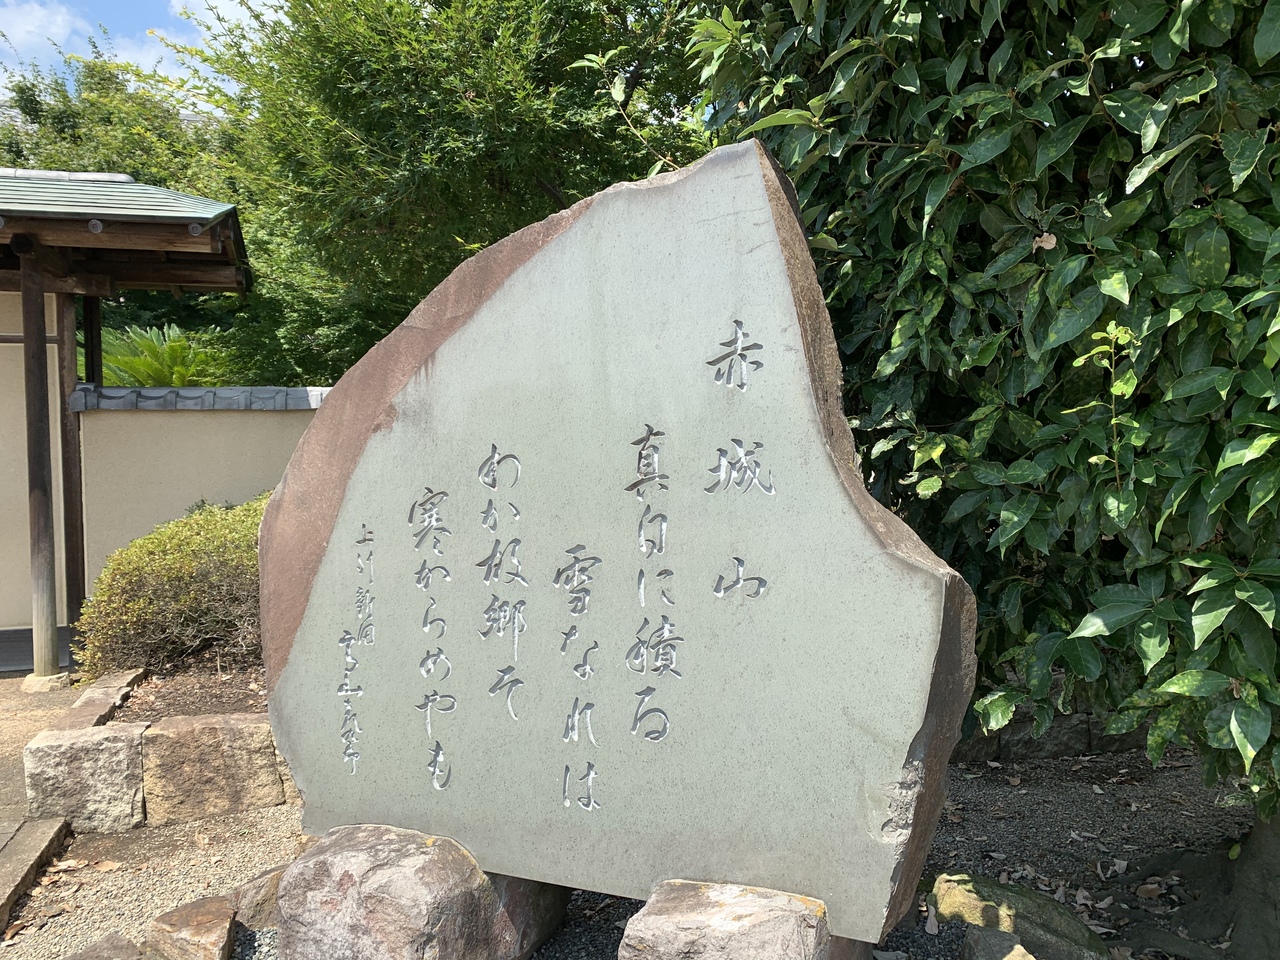 赤城山
真白に積る
雪なれは
わか故郷そ
寒からめやも
上州新田
高山彦九郎